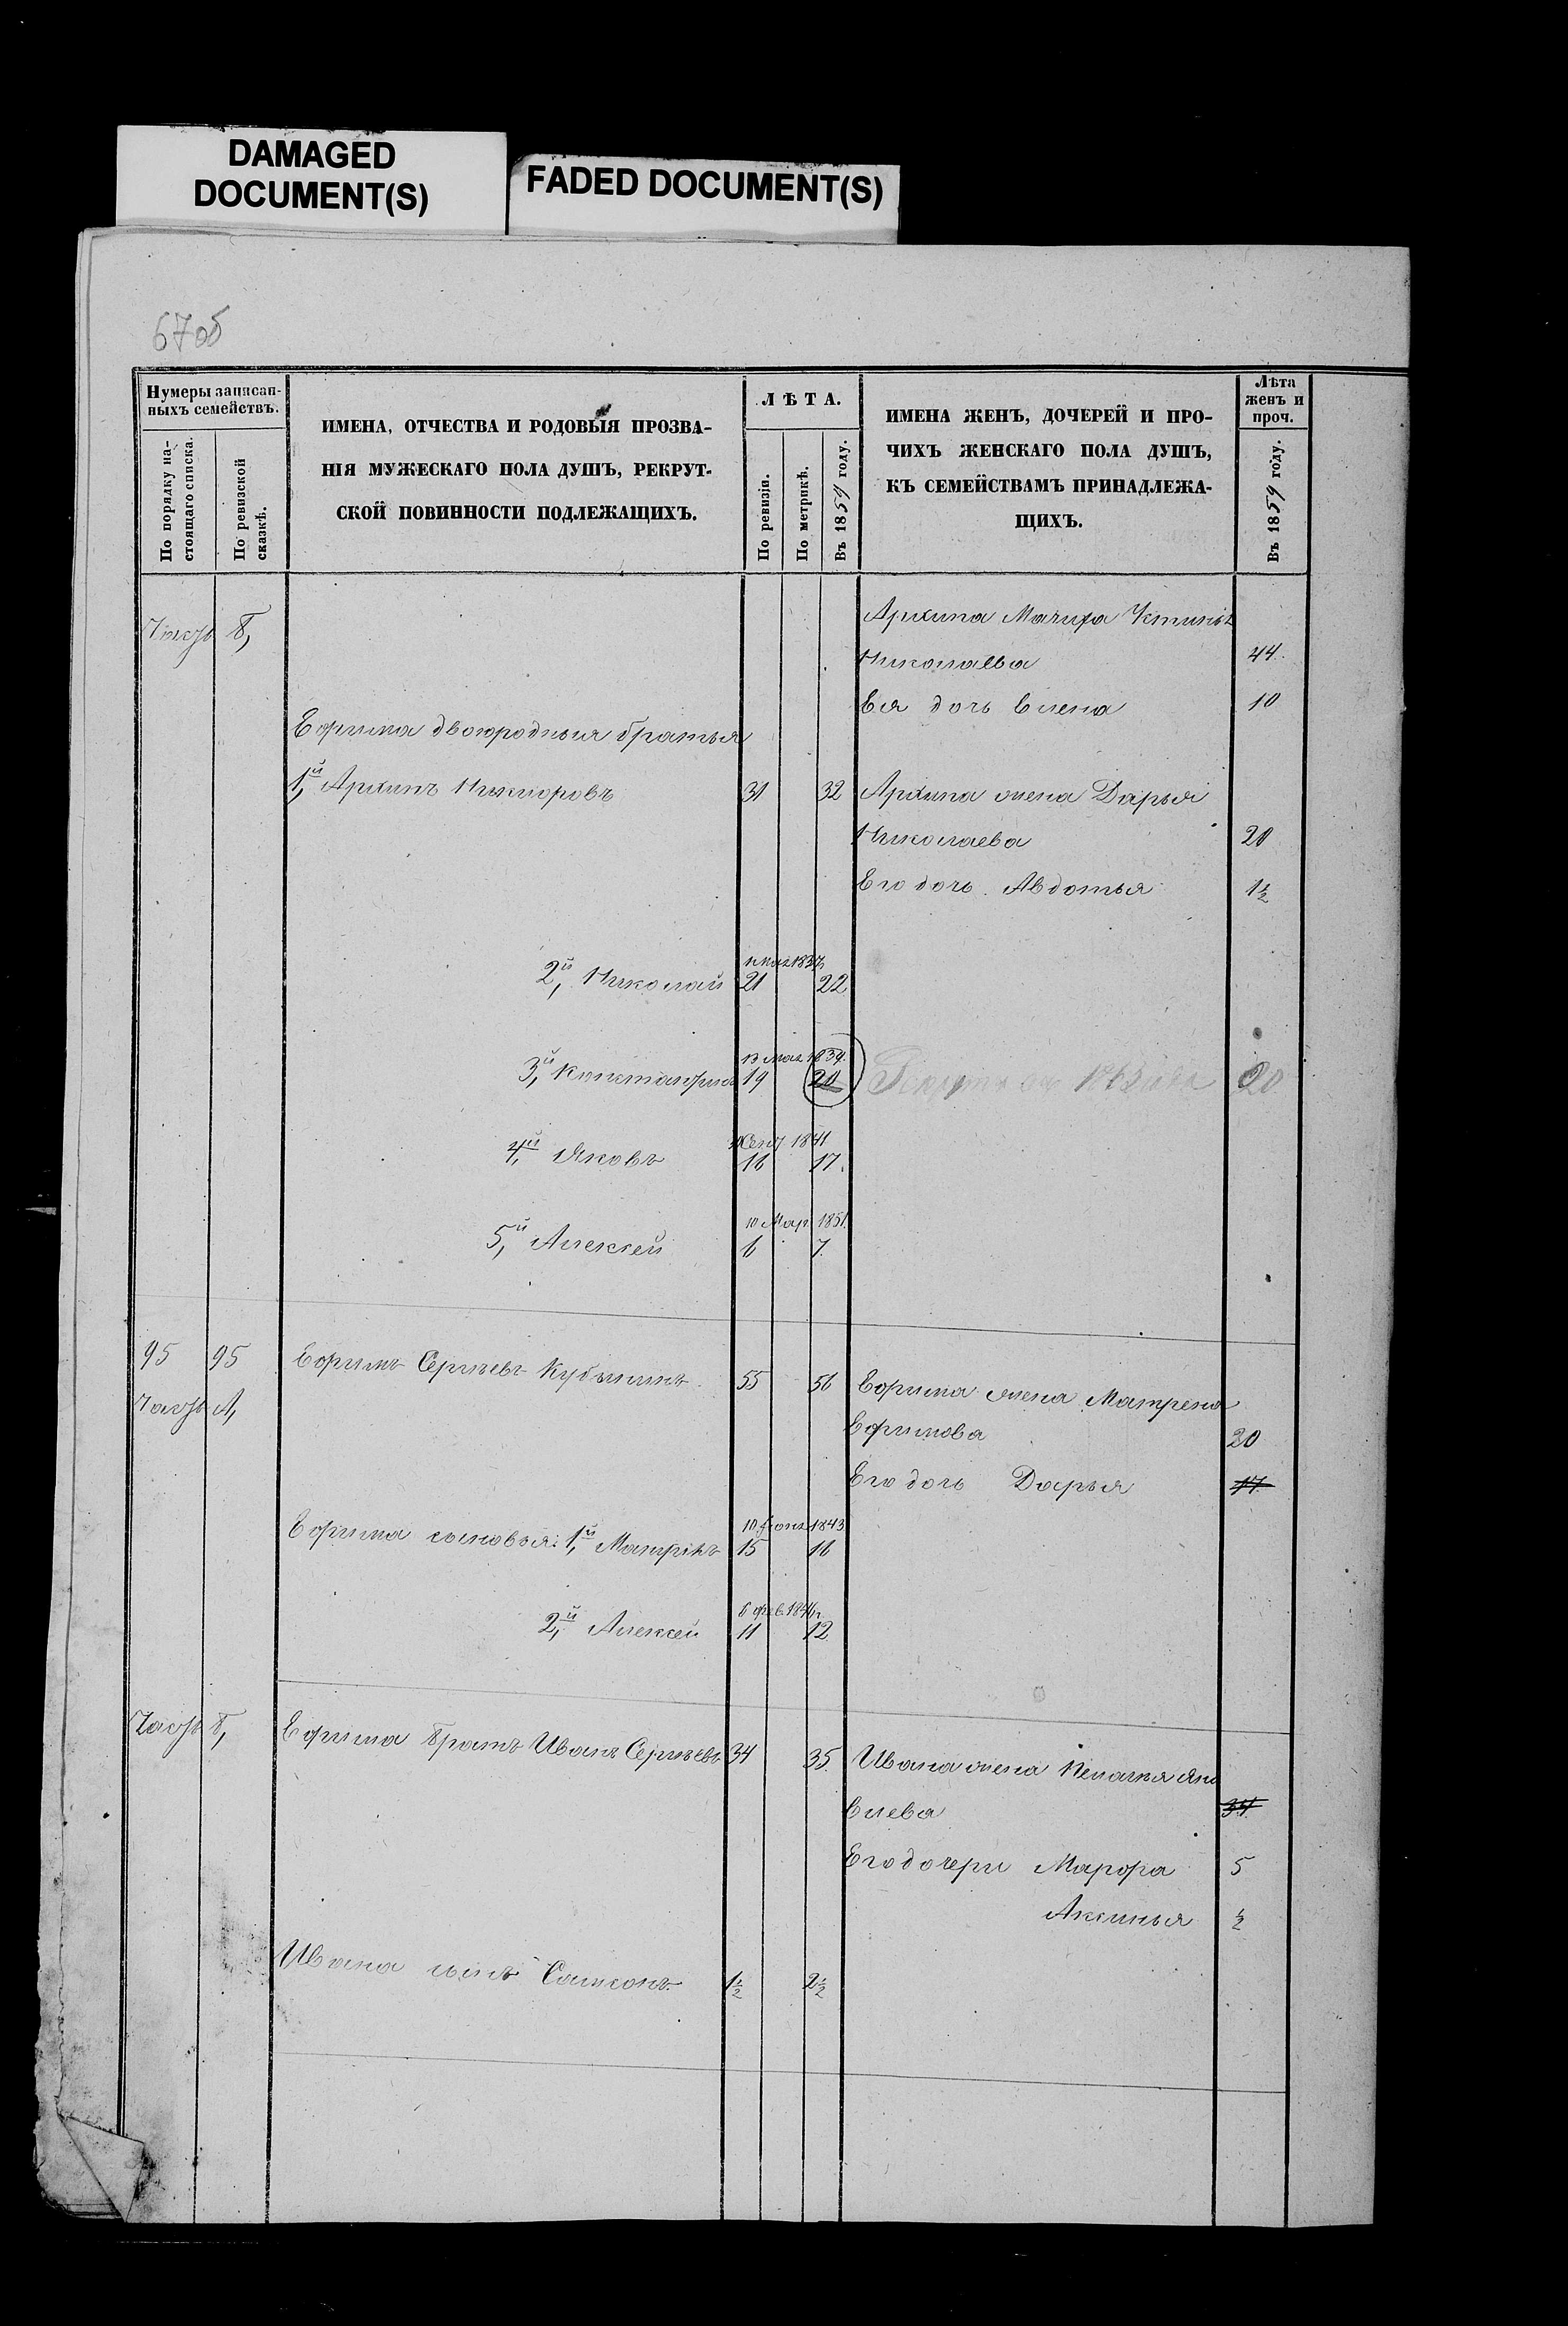 DAMAGED
DOCUMENT(S)
FADED DOCUMENT(S)
67об
Нумеры записан-
ныхъ семействъ.
По порядку на-
стоящаго списка.
По ревизской
сказкѣ.
ИМЕНА, ОТЧЕСТВА И РОДОВЫЯ ПРОЗВА-
НІЯ МУЖЕСКАГО ПОЛА ДУШЪ, РЕКРУТ-
СКОЙ ПОВИННОСТИ ПОДЛЕЖАЩИХЪ.
ЛѢТА.
По ревизіи.
По метрикѣ.
Въ 1859 году.
ИМЕНА ЖЕНЪ, ДОЧЕРЕЙ И ПРО-
ЧИХЪ ЖЕНСКАГО ПОЛА ДУШЪ,
КЪ СЕМЕЙСТВАМЪ ПРИНАДЛЕЖА-
ЩИХЪ.
Лѣта
женъ и
проч.
Въ 1859 году.
Часть Б, Архипа Мачиха Устинья
Николаева 44
Ея дочь Елена 10
Ефима двоюродныя братья
1й Архипъ Никифоровъ 31 32 Архипа жена Дарья
Николаева 20
Его дочь Авдотья 1½
мая 1837
2й, Николай 21 22
13 мая 1839.
3й, Константинъ 19 20 20
Сент 1841
4й, Яковъ 16 17.
10 Мар 1851.
5й, Алексей 6 7
95 95 Ефимъ Сергѣевъ 55 56 Ефима жена Матрена
Часть А, Ефимова 20
Его дочь Дарья 17
10 1843
Ефима сыновья: 1й, 15 16
6 фев. 1846
2й, Алексей 11 12
Часть Б, Ефима братъ Иванъ Сергѣевъ 34 35. Ивана жена Пелагея
34
Его дочери Марфа 5
Аксинья ½
Ивана сынъ Самсонъ. 1½ 2½